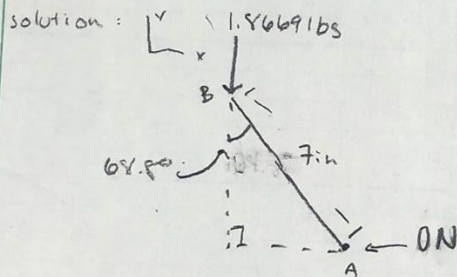 solution :
Y
1.8669lbs
X
B
68.8°
7in
0N
A